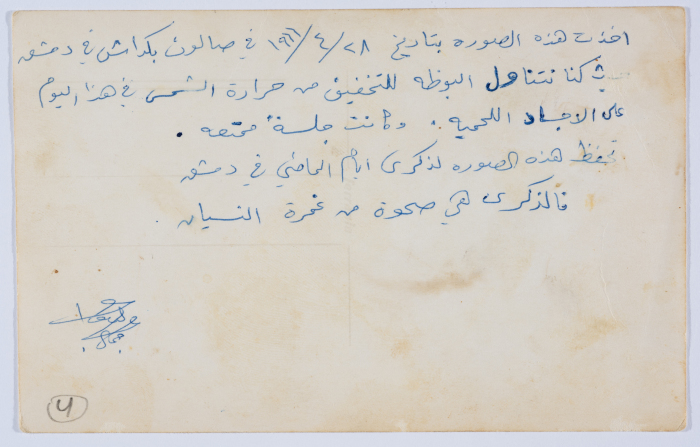 اخذت هذه الصوره بتاريخ ٢٨/٤/١٩٦٦ في صالون بكداش في دمشق
حيث كنا نتناول البوظه للتخفيف من حرارة الشمس في هذا اليوم
على الاجساد اللحميه . وكانت جلسة ممتعه .
تحفظ هذه الصوره لذكرى ايام الماضي في دمشق
فالذكرى هي صحوة من غمرة النسيان .
4